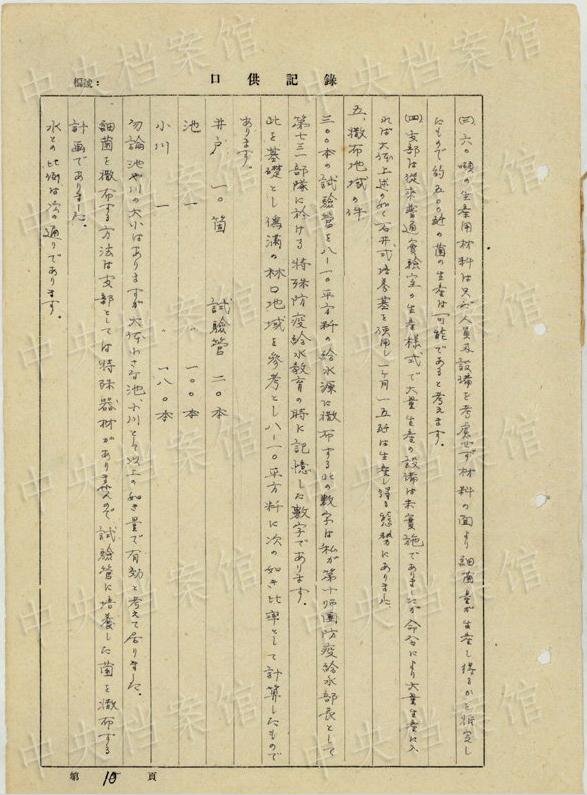 編號：
口供記錄
(三) 六〇噸の生産用材料は只今人員及設備を考慮せず材料の面より細菌量が生産し得るかを推定し
たもので約五〇〇瓩の菌の生産は可能であると考えます。
(四) 支部は従来普通実験室の生産様式で大量生産の設備は未実施でありましたが命令により大量生産に入
れば大体上述の如く石井式培養基を使用し一ヶ月一五瓩は生産し得る態勢にありました
五、撒布地域の件
三〇〇本の試験管を八—一〇平方粁の給水源に撒布する此の数字は私が第十師團防疫給水部長として
第七三一部隊に於ける特殊防疫給水教育の時に記憶した数字であります。
此を基礎とし偽満の林口地域を参考とし八—一〇平方粁に次の如き比率として計算したもので
あります。
井戸 一〇箇 試験管 二〇本
池 一 〃 一〇〇本
小川 一 〃 一八〇本
勿論池や川の大小はありますが大体小さな池、小川とすれば以上の如き量で有効と考えて居りました。
細菌を撒布する方法は支部としては特殊器材がありませんので試験管に培養した菌を撒布する
計画でありました。
水との比例は次の通りであります。
第 10 頁
中央档案馆